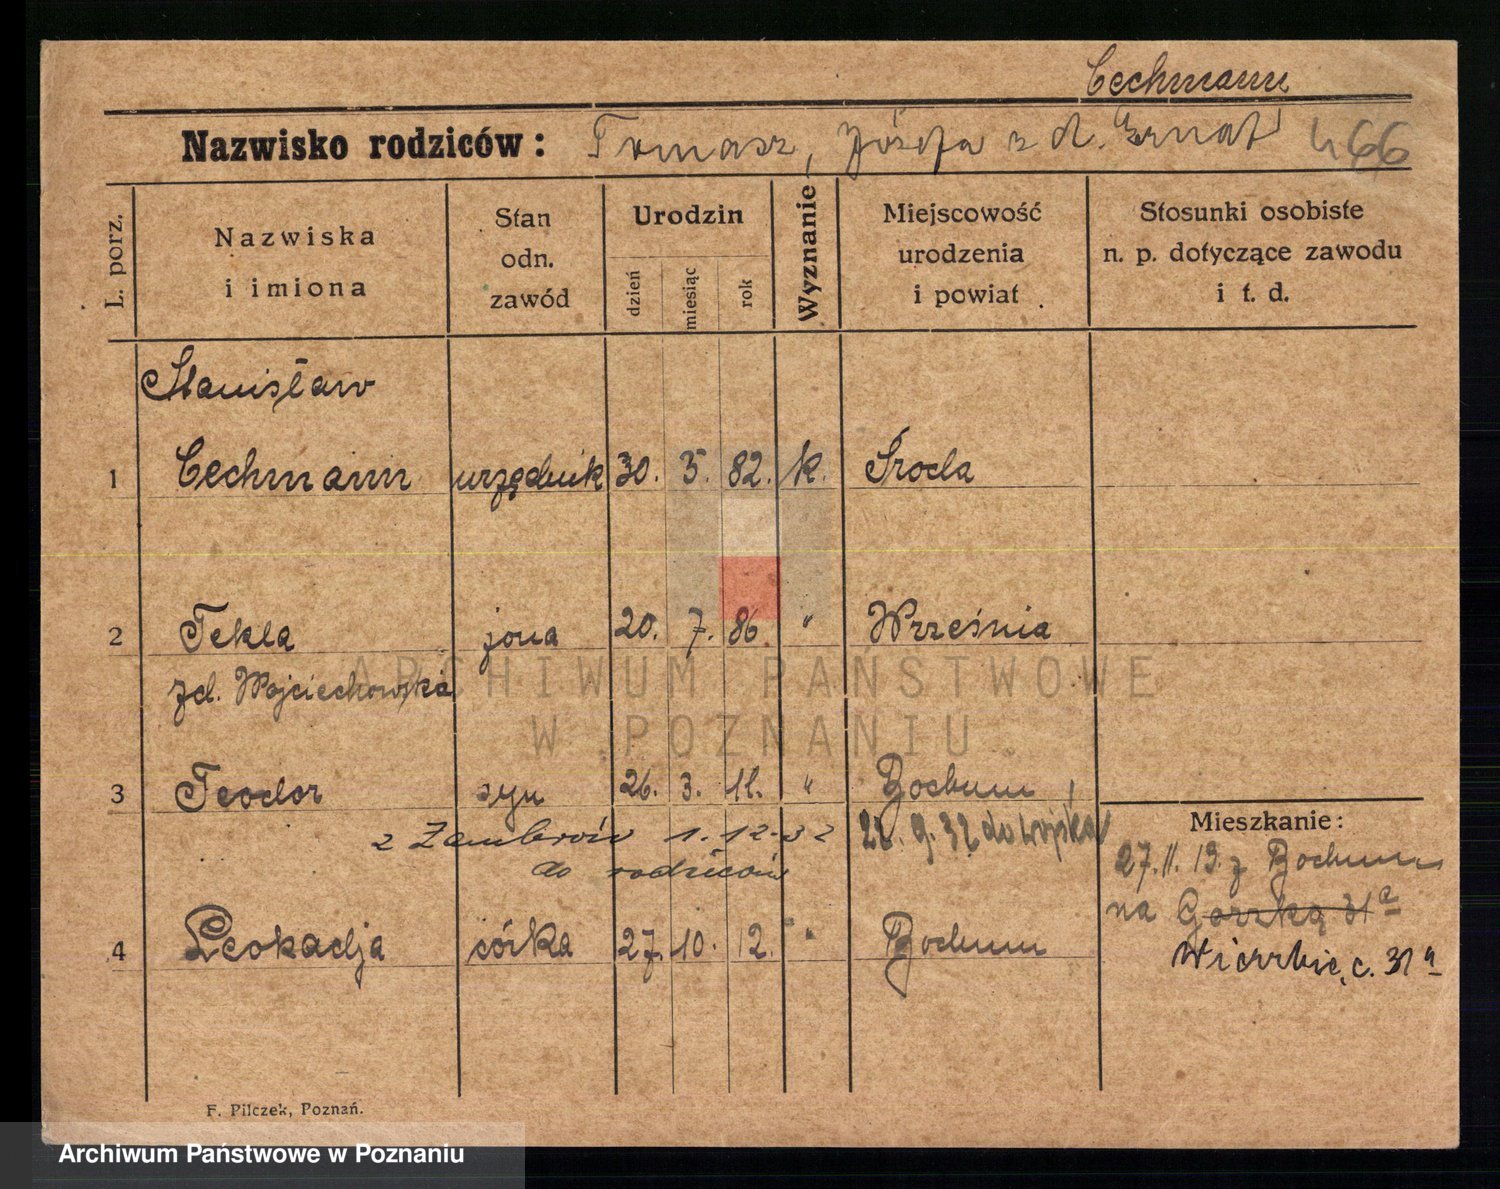 Cechmann
Nazwisko rodziców: Tomasz, Józefa z d. 466
L. porz.
Nazwiska
i imiona
Stan
odn.
zawód
Urodzin
dzień
miesiąc
rok
Wyznanie
Miejscowość
urodzenia
i powiat
Stosunki osobiste
n. p. dotyczące zawodu
i t. d.
Stanisław
1 Cechmann urzędnik 30. 5. 82. k. Środa
2 Tekla żona 20. 7. 86 " Września
zd. Wojciechowska
ARCHIWUM PAŃSTWOWE
W POZNANIU
3 Teodor syn 26. 3. 11. " Bochum
z Zambrów 1. 12. 32 22. 9. 32 do wojska
do rodziców
Mieszkanie:
27. 11. 19. z Bochum
na 31a
4 Leokadja córka 27. 10. 12. " Bochum
Wierzbięc. 31a
F. Pilczek, Poznań.
Archiwum Państwowe w Poznaniu